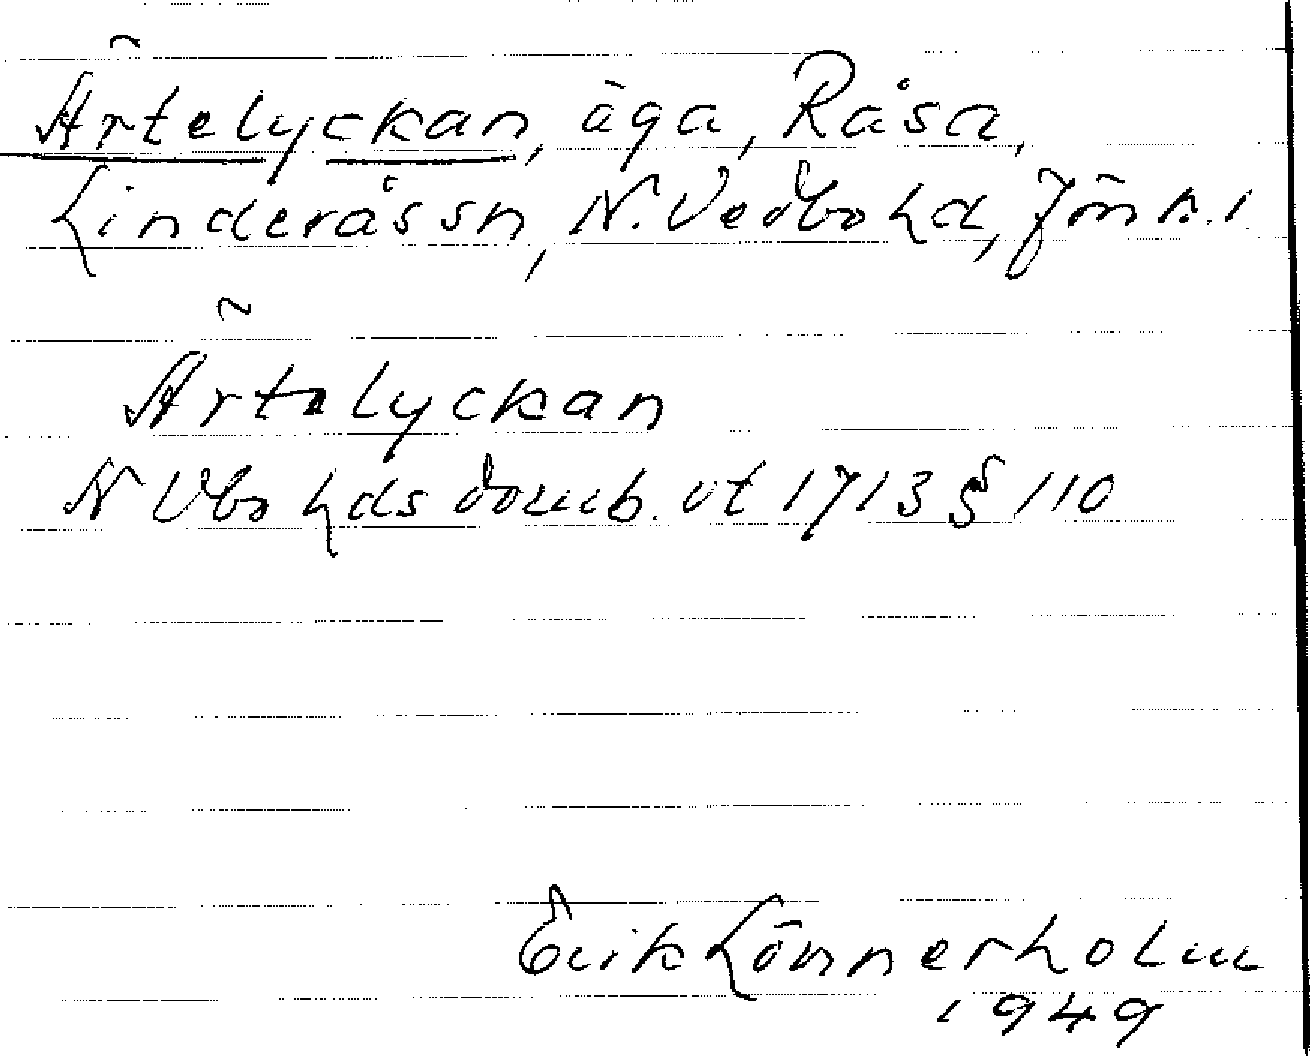 Ärtelyckan, äga, Råsa,
Linderås sn, N. Vedbo hd, Jönk. l
Ärtelyckan
N Vbo hds domb. vt 1713 § 110
Erik Lönnerholm
1949